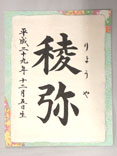 稜弥
りょうや
平成二十九年十二月五日生